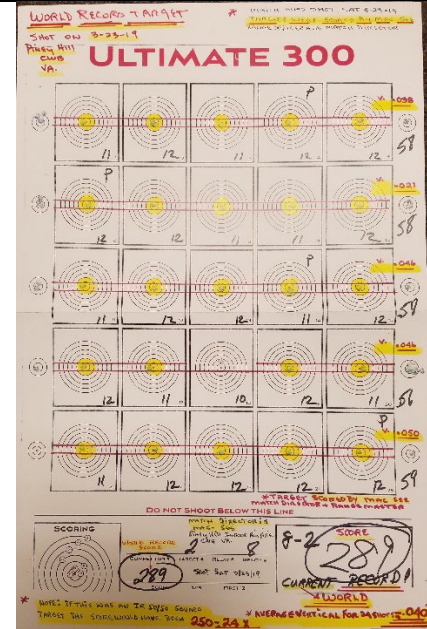 WORLD RECORD TARGET
SHOT ON 3-23-19
Piney Hill
CWB
VA.
ULTIMATE 300
P
V. .038
11 12 11 12 12 58
P
V. .021
12 12 11 11 12 58
P
V. .046
11 12 12 12 12 59
V. .046
12 11 10 12 11 56
P
V. .050
11 12 12 12 12 59
* TARGET SCORED BY MAC SEE
MATCH DIRECTOR + RANGE MASTER
DO NOT SHOOT BELOW THIS LINE
SCORING
WORLD RECORD
SCORE
289
MATCH DIRECTOR IS
MAC SEE
2 8
8-2
SCORE
289
CURRENT RECORD!
* WORLD
* NOTE: IF THIS WAS AN IR 50/50 SCORED
TARGET THE SCORE WOULD HAVE BEEN 250-24 X
* AVERAGE VERTICAL FOR 24 SHOTS = .040